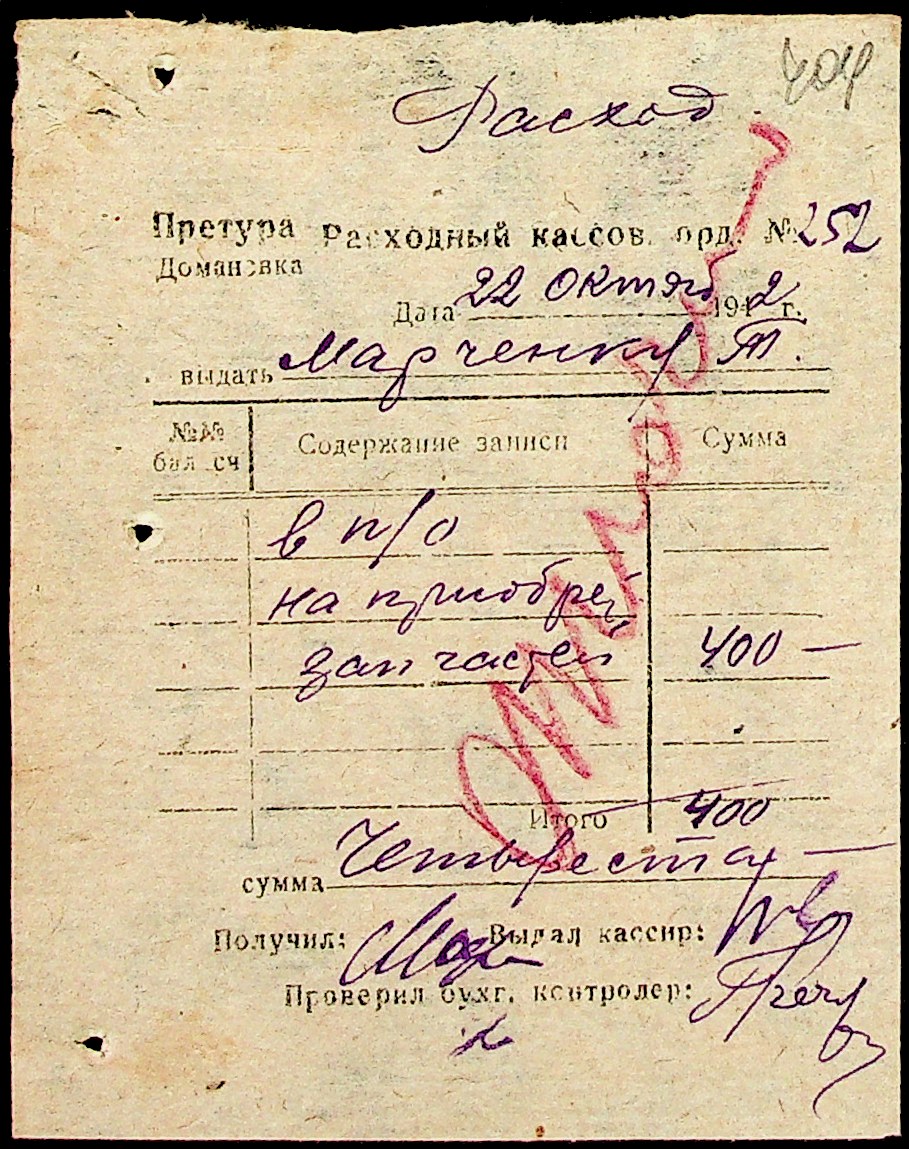 404
Расход
Претура Расходный кассов. орд. № 252
Домановка
Дата 22 Октяб 1942 г.
выдать Марченку Т.
№№ бал. сч Содержание записи Сумма
в п/о
на приобрет
запчастей 400 —
Итого 400
сумма Четыреста —
Получил: Мар Выдал кассир:
Проверил бухг. контролер: